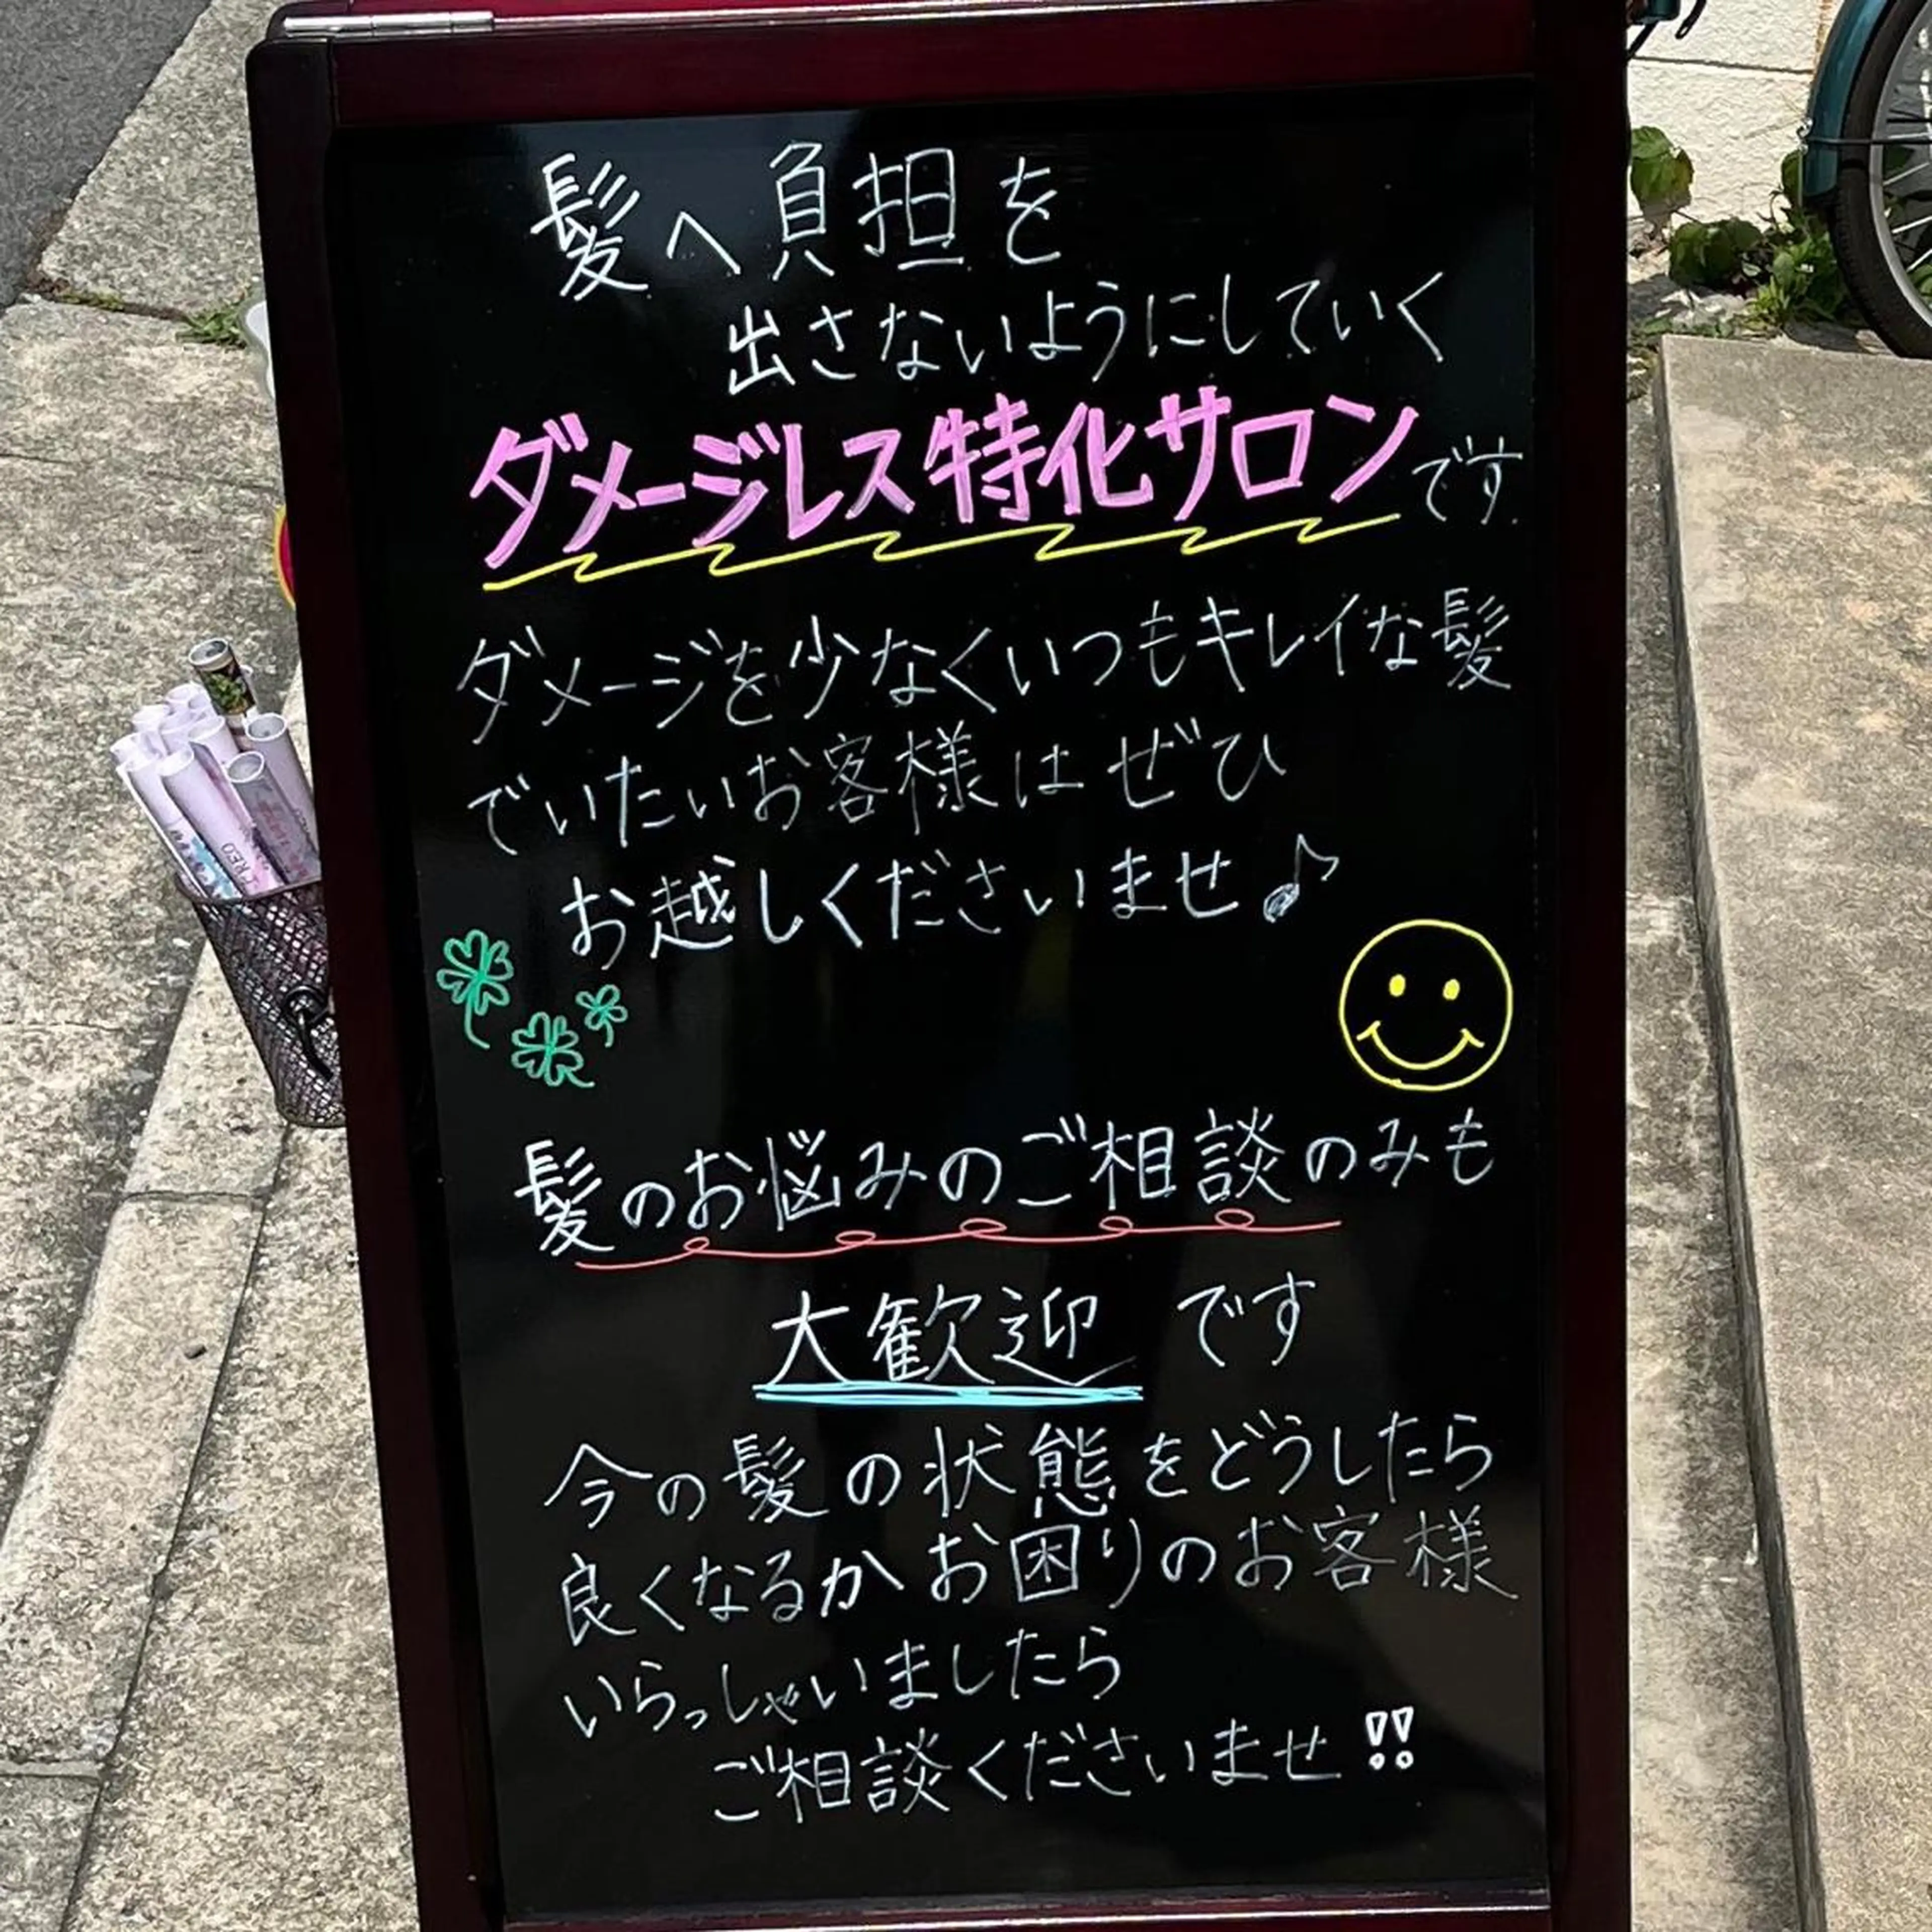 髪へ負担を
出さないようにしていく
ダメージレス特化サロンです
ダメージを少なくいつもキレイな髪
でいたいお客様はぜひ
お越しくださいませ♪
髪のお悩みのご相談のみも
大歓迎です
今の髪の状態をどうしたら
良くなるかお困りのお客様
いらっしゃいましたら
ご相談くださいませ!!